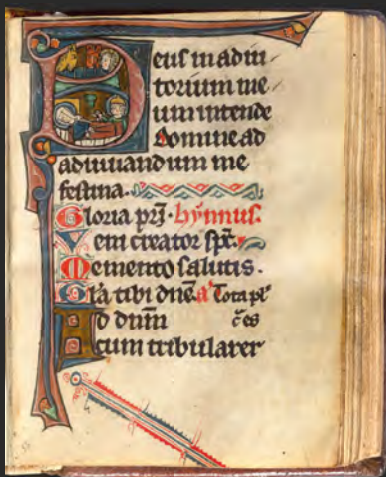 Deus in adiu
torium me
um intende
Domine ad
adiuuandum me
festina.
Gloria pr̃i. hỹmnus.
Veni creator sp̃c.
Memento salutis.
Gl̃a tibi dñe. a Tota pl̃
Ad dñm c̃es
cum tribularer